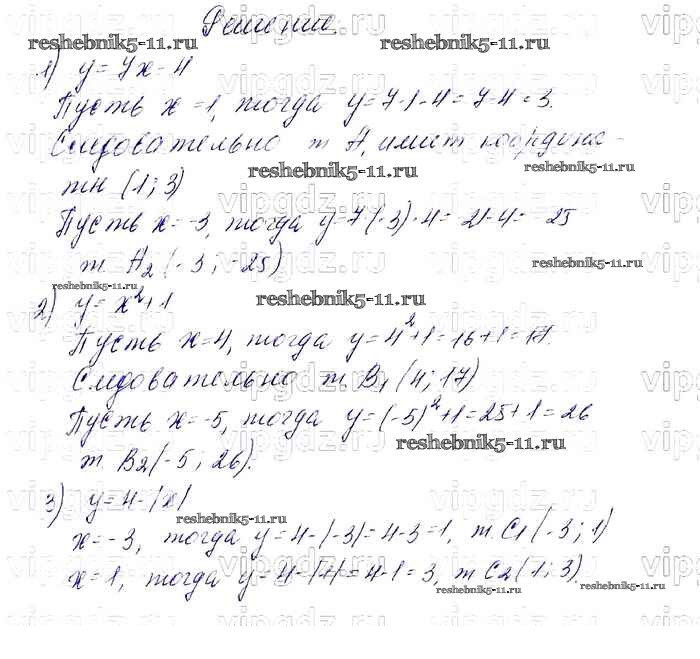 Решение.
reshebnik5-11.ru reshebnik5-11.ru
1) y = 7x - 4
Пусть x = 1, тогда y = 7·1 - 4 = 7 - 4 = 3.
Следовательно т A₁ имеет координа-
reshebnik5-11.ru reshebnik5-11.ru
ты (1; 3)
Пусть x = -3, тогда y = 7(-3) - 4 = -21 - 4 = -25
т. A₂ (-3; -25)
reshebnik5-11.ru
reshebnik5-11.ru
2) y = x² + 1
reshebnik5-11.ru
Пусть x = 4, тогда y = 4² + 1 = 16 + 1 = 17.
Следовательно т. B₁ (4; 17)
Пусть x = -5, тогда y = (-5)² + 1 = 25 + 1 = 26
reshebnik5-11.ru
т. B₂ (-5; 26).
3) y = 4 - |x|
reshebnik5-11.ru
x = -3, тогда y = 4 - |-3| = 4 - 3 = 1, т. C₁ (-3; 1)
x = 1, тогда y = 4 - |1| = 4 - 1 = 3, т C₂ (1; 3).
reshebnik5-11.ru reshebnik5-11.ru
vipgdz.ru